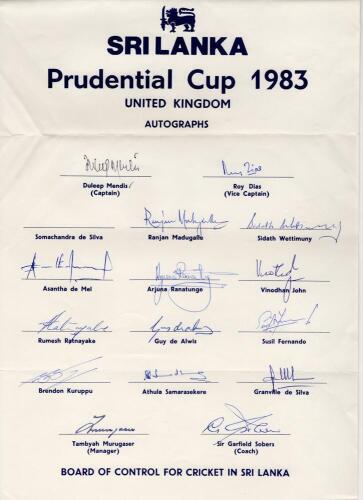 SRI LANKA
Prudential Cup 1983
UNITED KINGDOM
AUTOGRAPHS
Duleep Mendis
Duleep Mendis Roy Dias
(Captain) (Vice Captain)
Ranjan Madugalle Sidath Wettimuny
Somachandra de Silva Ranjan Madugalle Sidath Wettimuny
Asantha de Mel Arjuna Ranatunge Vinodhan John
Rumesh Ratnayake Guy de Alwis Susil Fernando
Brendon Kuruppu Athula Samarasekere Granville de Silva
Tambyah Murugaser Sir Garfield Sobers
(Manager) (Coach)
BOARD OF CONTROL FOR CRICKET IN SRI LANKA